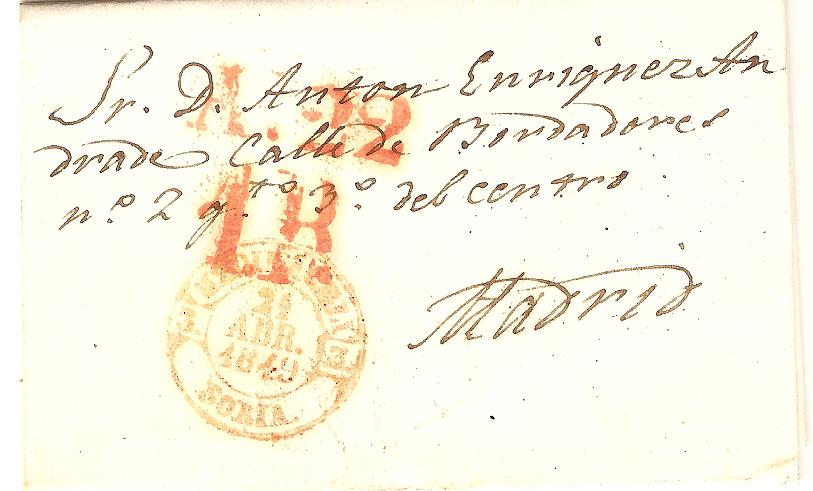 Sr. D. Anton Enriquez An
drade Calle de Bordadores
n.º 2 q.to 3.º del centro
Madrid
A. 22
1R.
21
ABR.
1849
SORIA.